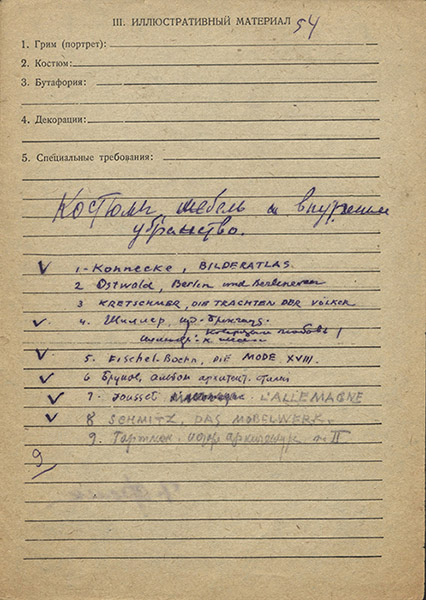 III. ИЛЛЮСТРАТИВНЫЙ МАТЕРИАЛ 54
1. Грим (портрет):
2. Костюм:
3. Бутафория:
4. Декорации:
5. Специальные требования:
Костюмы, мебель и внутреннее
убранство.
1. Könnecke, BILDERATLAS.
2 Ostwald, Berlin und Berlinerinn
3 KRETSCHMER, DIE TRACHTEN DER VÖLKER
4. Шиллер, изд. Брокгауз.
Коварство и любовь
5. Fischel-Boehn, DIE MODE XVIII.
6 Брунов, альбом архитект. стили
7. Jousset L'ALLEMAGNE
8 SCHMITZ, DAS MÖBELWERK.
9. Гартман. истор. архитектур т. II
9